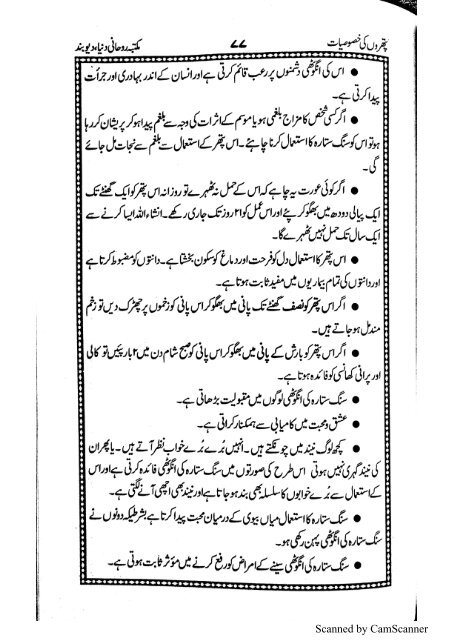 پتھروں کی خصوصیات ۷۷ مکتبہ روحانی دنیا، دیوبند
● اس کی انگوٹھی دشمنوں پر رعب قائم کرتی ہے اور انسان کے اندر بہادری اور جرأت
پیدا کرتی ہے۔
● اگر کسی شخص کا مزاج بلغمی ہو یا موسم کے اثرات کی وجہ سے بلغم پیدا ہو کر پریشان کر رہا
ہو تو اس کو سنگ ستارہ کا استعمال کرنا چاہئے۔ اس پتھر کے استعمال سے بلغم سے نجات مل جائے
گی۔
● اگر کوئی عورت یہ چاہے کہ اس کے حمل نہ ٹھہرے تو روزانہ اس پتھر کو ایک گھنٹے تک
ایک پیالی دودھ میں بھگو کر پئے اور اس عمل کو ۲۱ روز تک جاری رکھے۔ انشاء اللہ ایسا کرنے سے
ایک سال تک حمل نہیں ٹھہرے گا۔
● اس پتھر کا استعمال دل کو فرحت اور دماغ کو سکون بخشتا ہے۔ دانتوں کو مضبوط کرتا ہے
اور دانتوں کی تمام بیماریوں میں مفید ثابت ہوتا ہے۔
● اگر اس پتھر کو نصف گھنٹے تک پانی میں بھگو کر اس پانی کو زخموں پر چھڑک دیں تو زخم
مندمل ہو جاتے ہیں۔
● اگر اس پتھر کو بارش کے پانی میں بھگو کر اس پانی کو صبح شام دن میں ۲ بار پئیں تو کالی
اور پرانی کھانسی کو فائدہ ہوتا ہے۔
● سنگ ستارہ کی انگوٹھی لوگوں میں مقبولیت بڑھاتی ہے۔
● عشق و محبت میں کامیابی سے ہمکنار کراتی ہے۔
● کچھ لوگ نیند میں چونکتے ہیں۔ انہیں بُرے بُرے خواب نظر آتے ہیں۔ یا پھر ان
کی نیند گہری نہیں ہوتی اس طرح کی صورتوں میں سنگ ستارہ کی انگوٹھی فائدہ کرتی ہے اور اس
کے استعمال سے بُرے خوابوں کا سلسلہ بھی بند ہو جاتا ہے اور نیند بھی اچھی آنے لگتی ہے۔
● سنگ ستارہ کا استعمال میاں بیوی کے درمیان محبت پیدا کرتا ہے بشرطیکہ دونوں نے
سنگ ستارہ کی انگوٹھی پہن رکھی ہو۔
● سنگ ستارہ کی انگوٹھی سینے کے امراض کو رفع کرنے میں مؤثر ثابت ہوتی ہے۔
Scanned by CamScanner